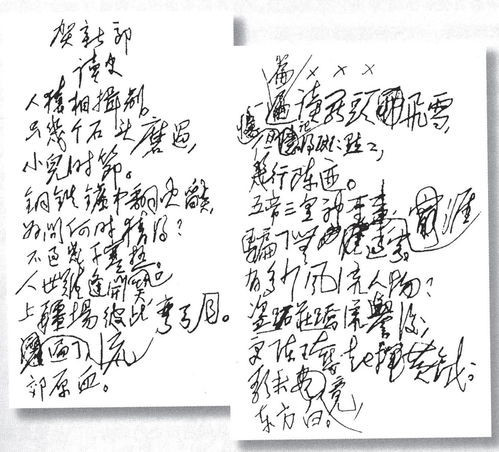 贺新郎
读史
人猿相揖别。
只几个石头磨过,
小儿时节。
铜铁鑪中翻火焰,
为问何时猜得?
不过几千寒热。
人世难逢開口笑。
上疆场彼此弯弓月。
流遍了
郊原血。
篇 × × ×
一篇读罢頭飛雪,
但记得斑斑点点,
几行陈迹。
五帝三皇神圣事
骗了无涯过客。
有多少风流人物?
盗跖莊蹻流譽後,
更陈王奋起挥黄钺。
歌未竟,
东方白。